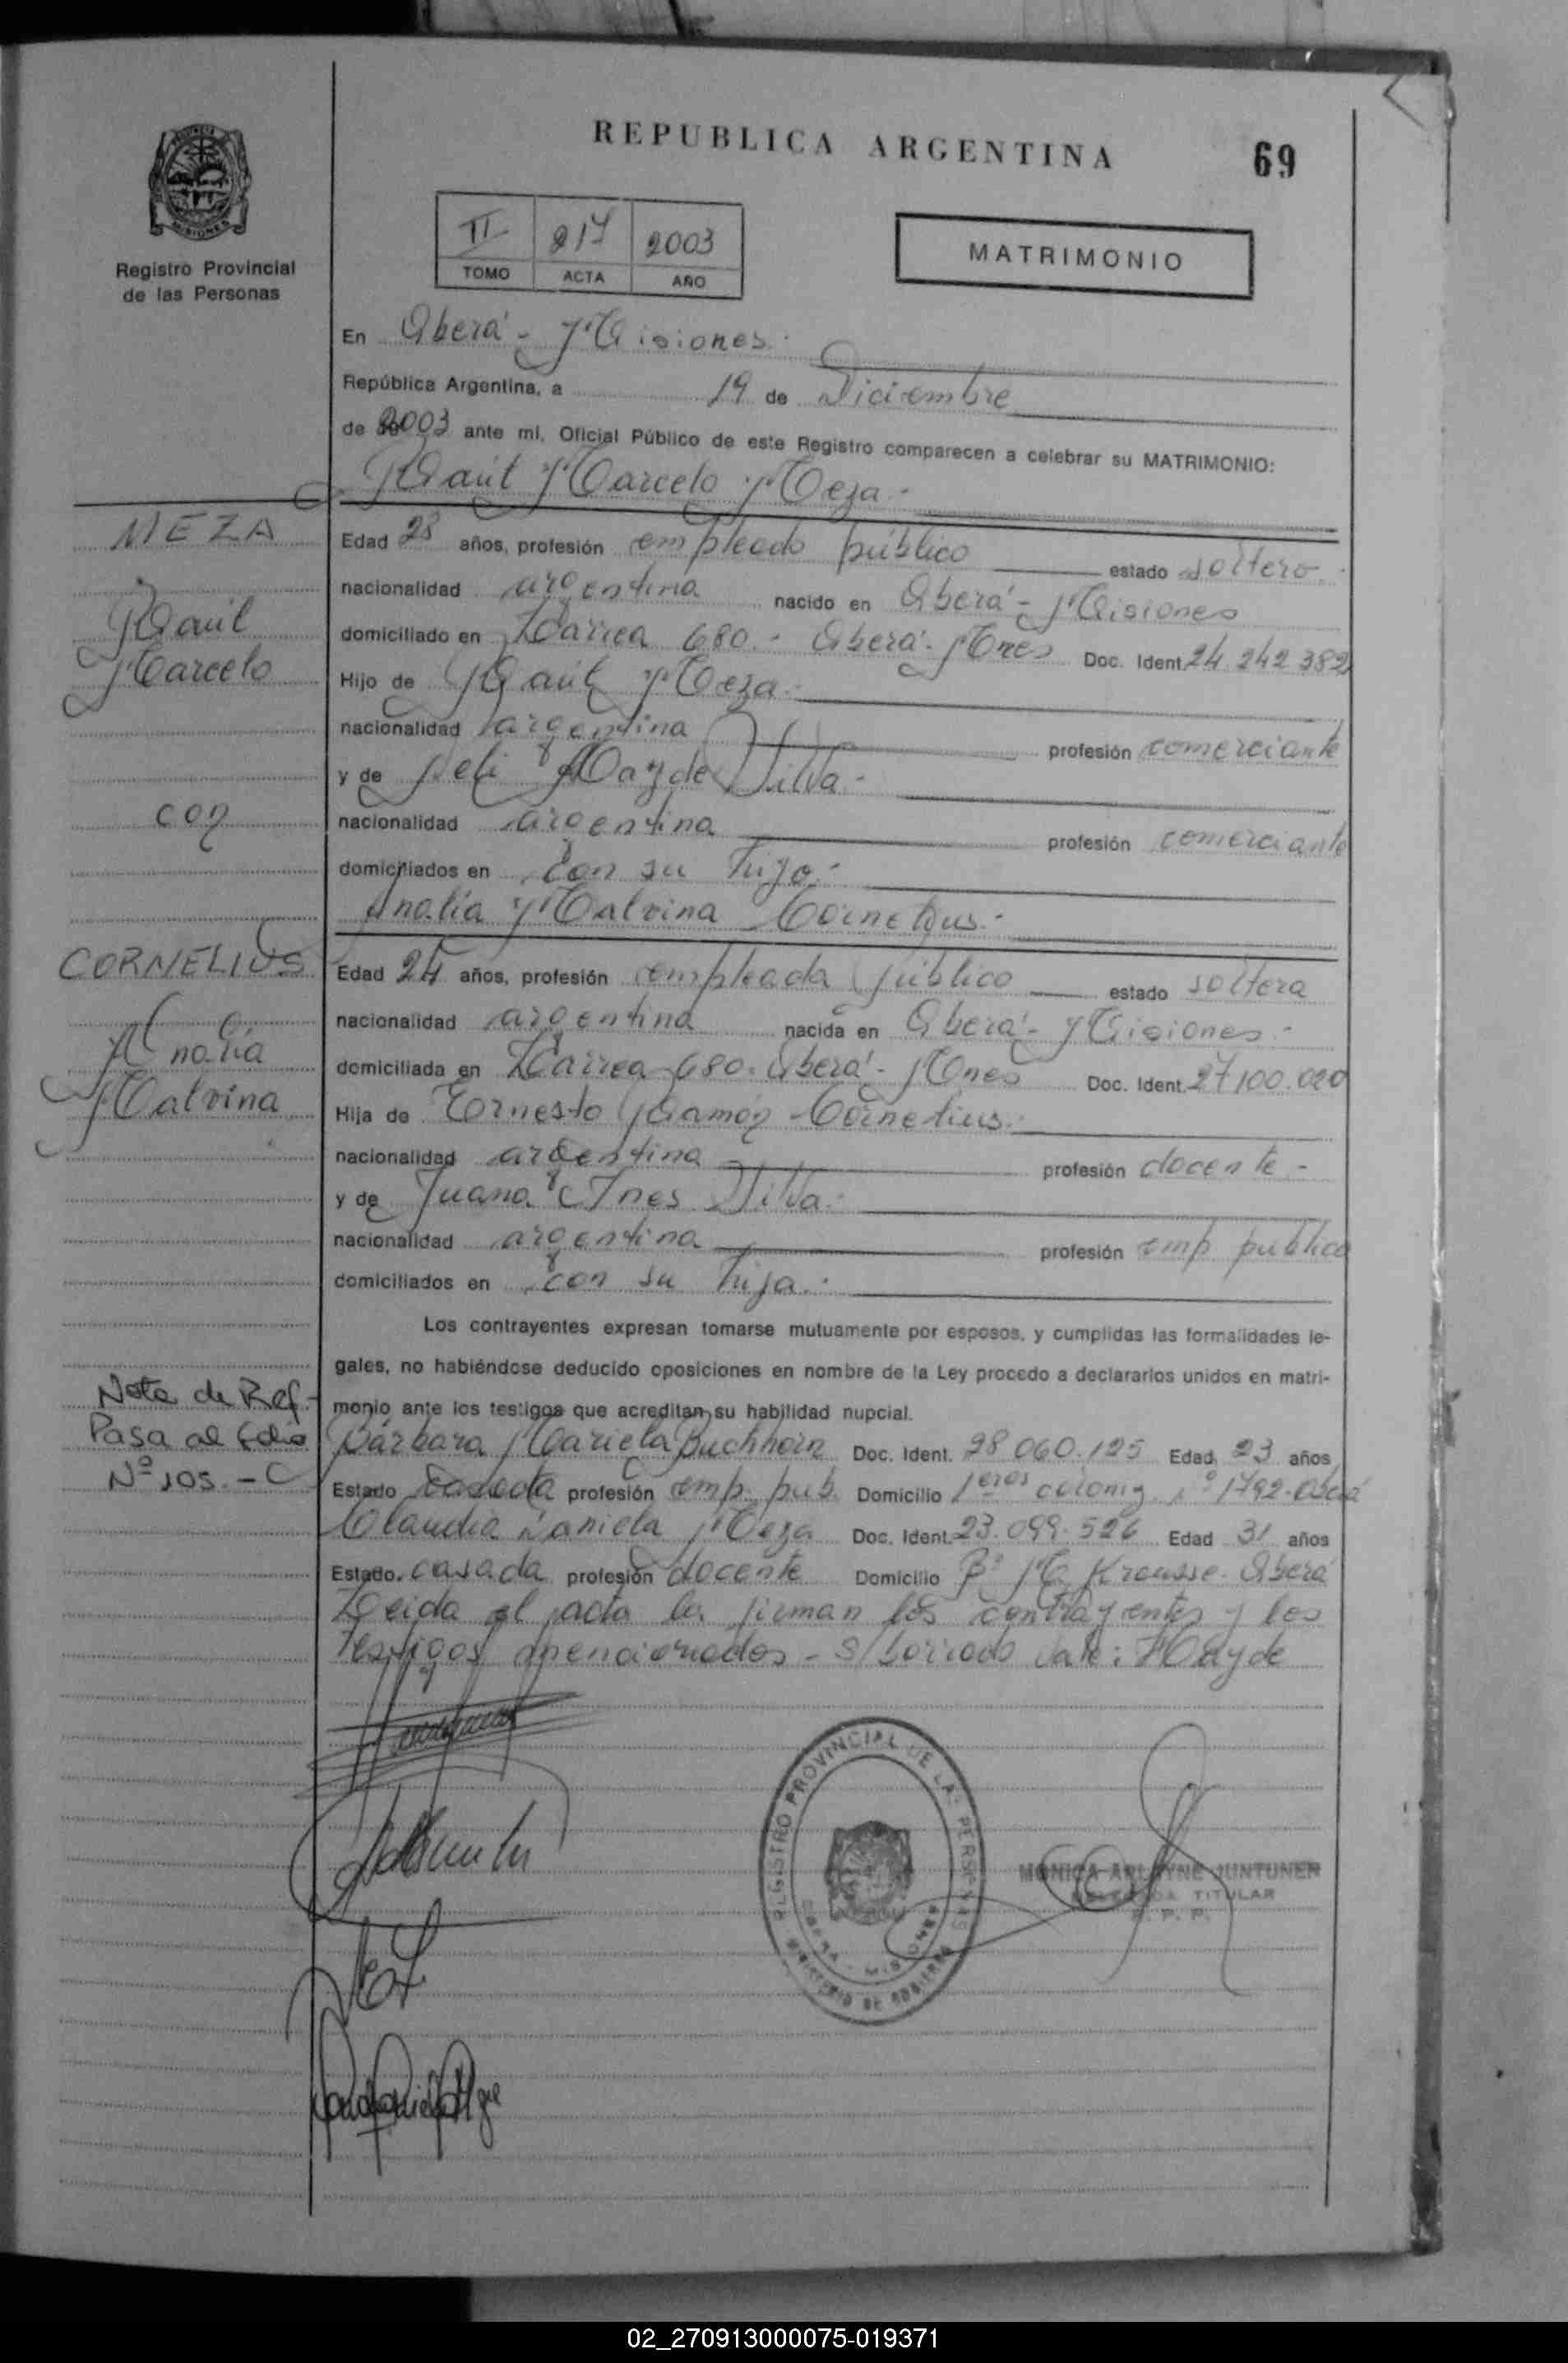 REPUBLICA ARGENTINA
69
II 217 2003
TOMO ACTA AÑO
MATRIMONIO
MISIONES
Registro Provincial
de las Personas
En Oberá - Misiones.
República Argentina, a 19 de Diciembre
de 2003 ante mí, Oficial Público de este Registro comparecen a celebrar su MATRIMONIO:
Raúl Marcelo Meza.-
MEZA
Raúl
Marcelo
con
CORNELIUS
Analía
Malvina
Edad 28 años, profesión empleado público estado soltero.-
nacionalidad argentina nacido en Oberá - Misiones
domiciliado en Larrea 680.- Oberá - Mnes Doc. Ident. 24.242.382
Hijo de Raúl Meza.-
nacionalidad argentina profesión comerciante
y de Haydé Silva.-
nacionalidad argentina profesión comerciante
domiciliados en con su hijo.-
Analía Malvina Cornelius.-
Edad 24 años, profesión empleada público estado soltera
nacionalidad argentina nacida en Oberá - Misiones.-
domiciliada en Larrea 680. Oberá - Mnes Doc. Ident. 27.100.020
Hija de Ernesto Ramón Cornelius.-
nacionalidad argentina profesión docente -
y de Juana Ines Silva.-
nacionalidad argentina profesión emp público
domiciliados en con su hija.-
Los contrayentes expresan tomarse mutuamente por esposos, y cumplidas las formalidades le-
gales, no habiéndose deducido oposiciones en nombre de la Ley procedo a declararlos unidos en matri-
monio ante los testigos que acreditan su habilidad nupcial.
Nota de Ref.-
Pasa al folio
Nº 105.-
Bárbara Mariela Buchhorn Doc. Ident. 28.060.125 Edad 23 años
Estado casada profesión emp. pub. Domicilio 1eros coloniz. nº 1792-Oberá
Claudia Daniela Meza Doc. Ident. 23.099.526 Edad 31 años
Estado casada profesión docente Domicilio Bº Krausse - Oberá
Leida el acta la firman los contrayentes y los
testigos mencionados - s/borrado vale: Hayde
REGISTRO PROVINCIAL DE LAS PERSONAS
OBERA - MISIONES
MINISTERIO DE GOBIERNO
MONICA ARLAYNE JUNTUNEN
DELEGADA TITULAR
R. P. P.
02_270913000075-019371